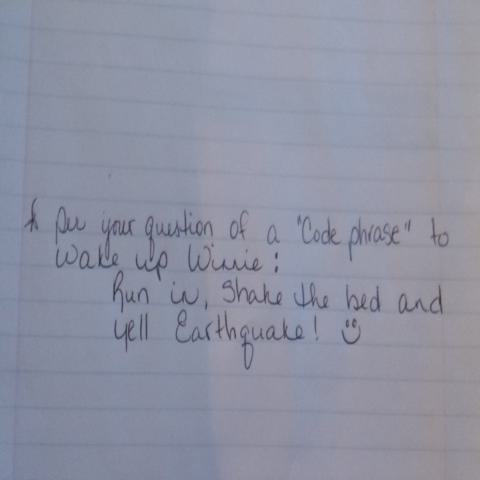 * Per your question of a "Code phrase" to
Wake up Winnie:
Run in, Shake the bed and
yell Earthquake! ☺